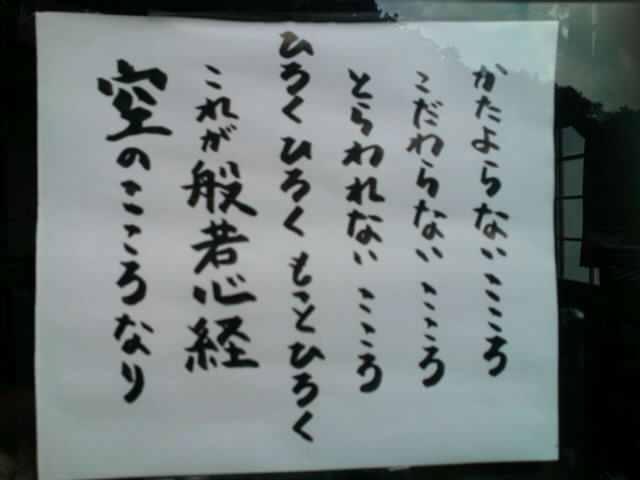 かたよらないこころ
こだわらないこころ
とらわれないこころ
ひろくひろくもことひろく
これが般若心経
空のこころなり